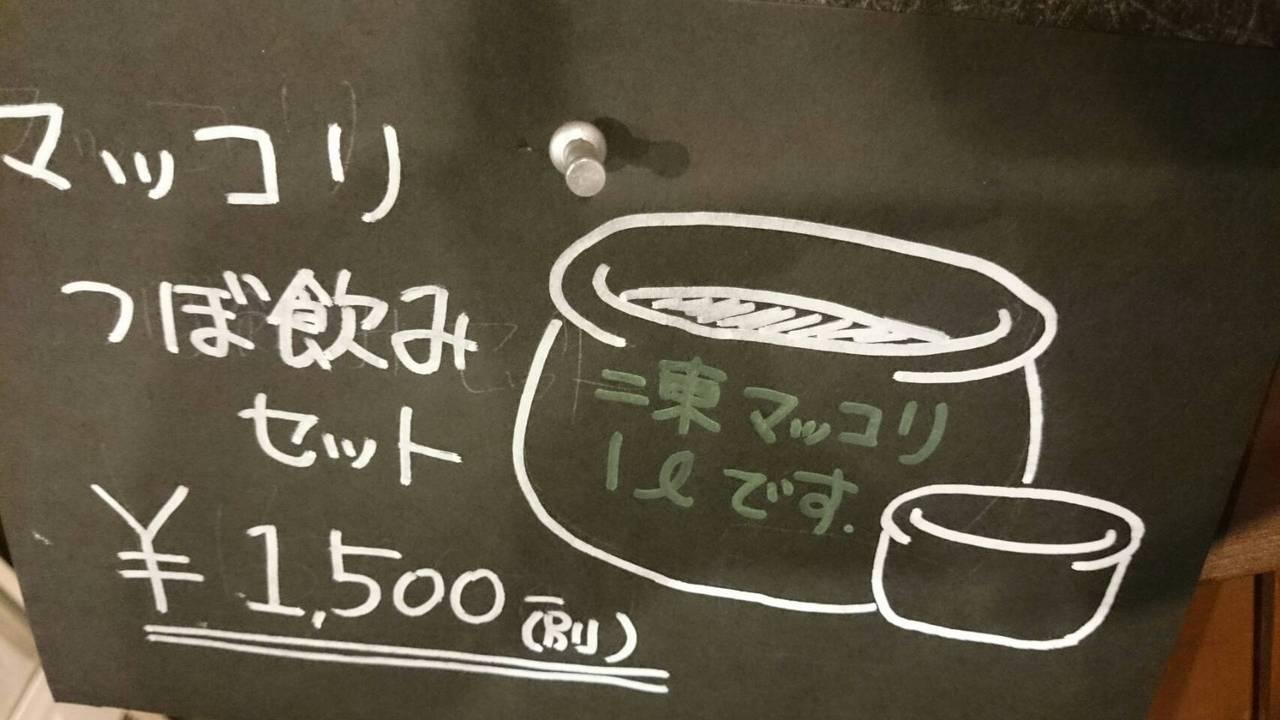 マッコリ
つぼ飲み
セット
¥1,500-(別)
二東マッコリ
1ℓです.